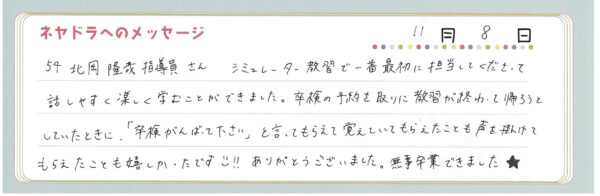 ネヤドラへのメッセージ 11月 8日
54 北岡 隆哉 指導員 さん シミュレーター教習で一番最初に担当してくださって
話しやすく楽しく学ぶことができました。卒検の予約を取りに教習が終わって帰ろうと
していたときに、「卒検がんばって下さい」と言ってもらえて覚えていてもらえたことも声を掛けて
もらえたことも嬉しかったです!! ありがとうございました。無事卒業できました★